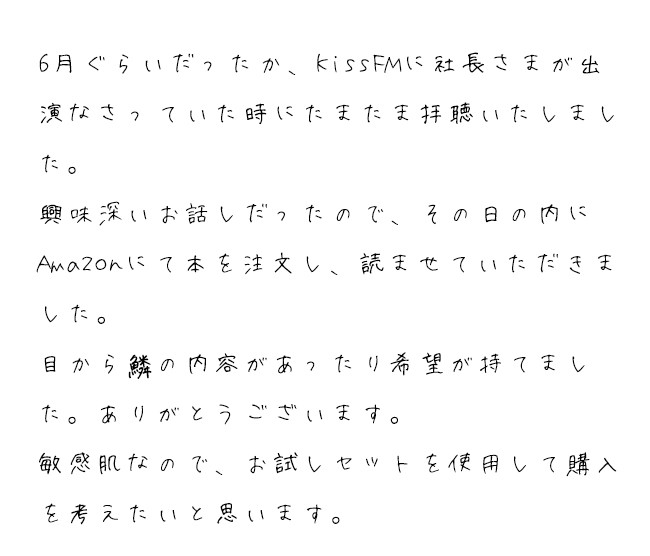 6月ぐらいだったか、KissFMに社長さまが出
演なさっていた時にたまたま拝聴いたしまし
た。
興味深いお話しだったので、その日の内に
Amazonにて本を注文し、読ませていただきま
した。
目から鱗の内容があったり希望が持てまし
た。ありがとうございます。
敏感肌なので、お試しセットを使用して購入
を考えたいと思います。